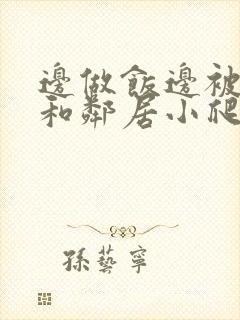 邊做飯邊被
和鄰居小爬
孫藝寧